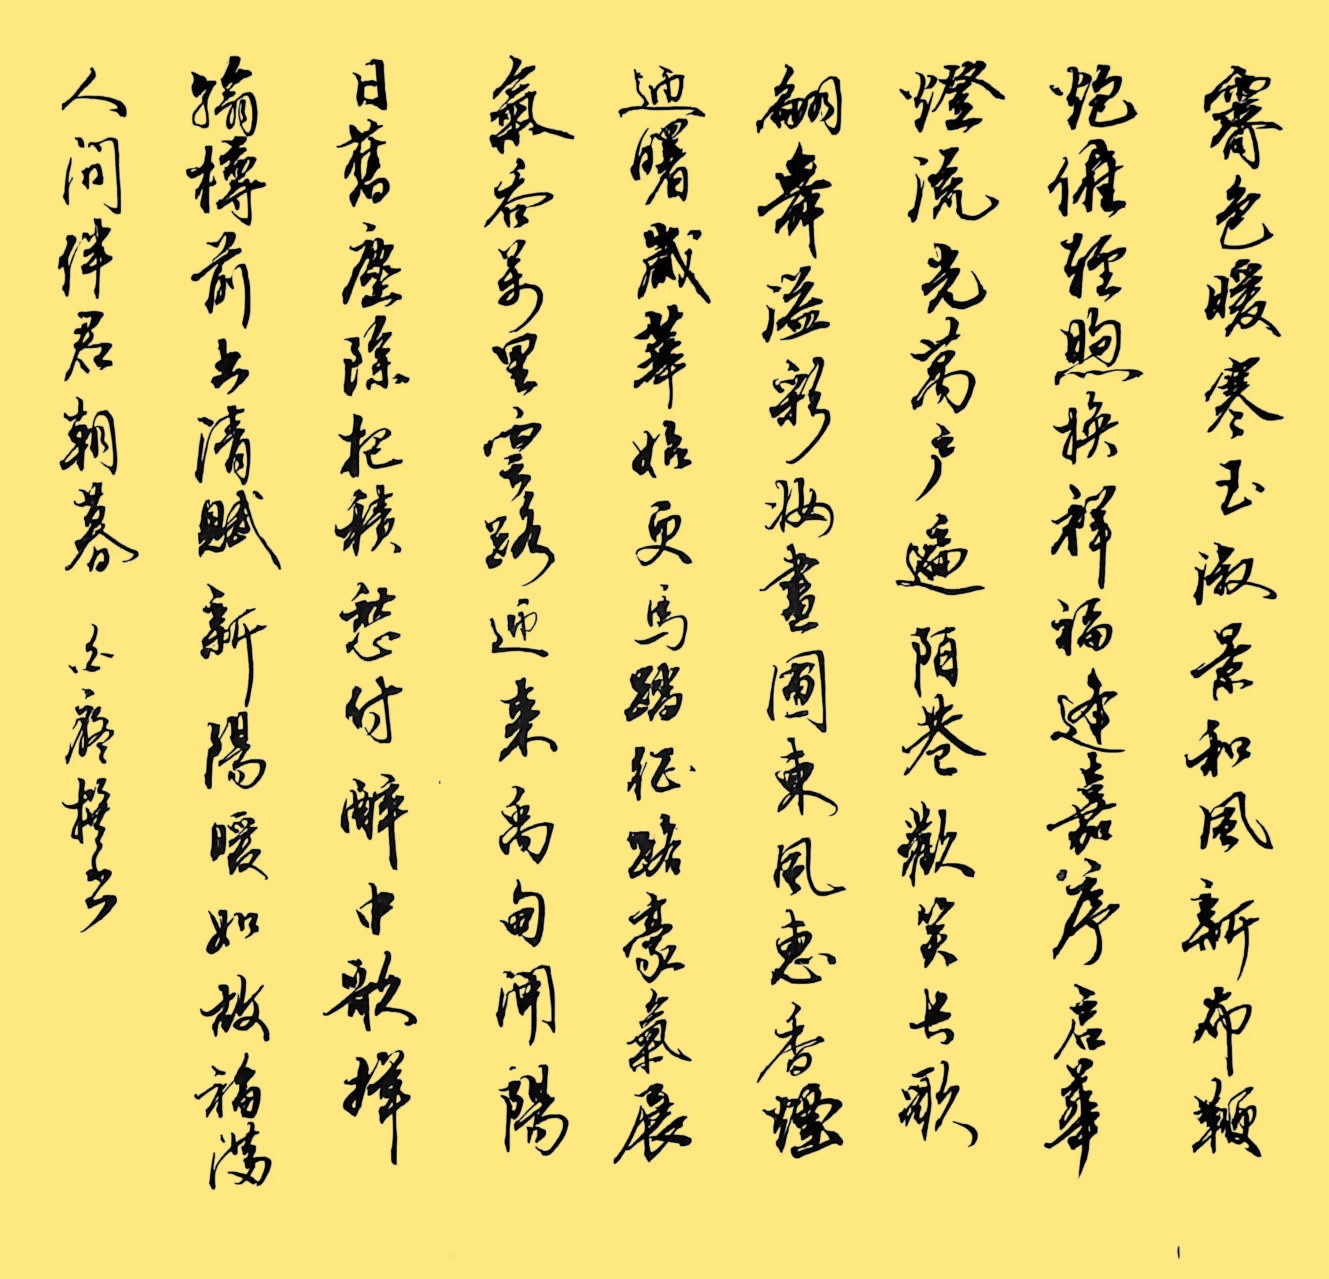 霽色暖寒玉淑景和風新布鞭
炮催輕煦換祥福逢嘉序启華
燈流光萬户遍陌巷歡笑长歌
翩舞溢彩妝畫圃東風惠香煙
迎曙歲華始更馬踏征路豪氣展
氣吞万里雲路迎来禹甸開陽
日舊塵除把積愁付醉中歌揮
翰樽前書清賦新陽暖如故福满
人间伴君朝暮 撰书